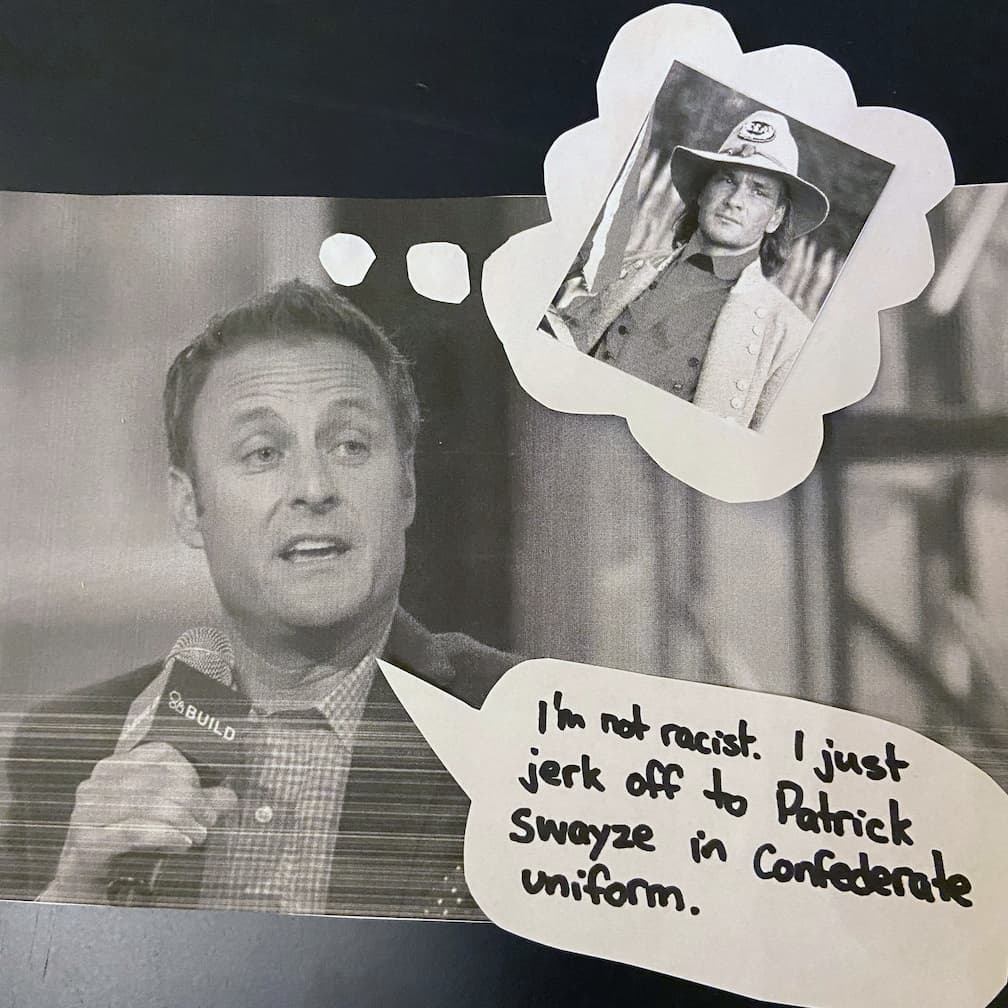 BUILD
I'm not racist. I just
jerk off to Patrick
Swayze in Confederate
uniform.